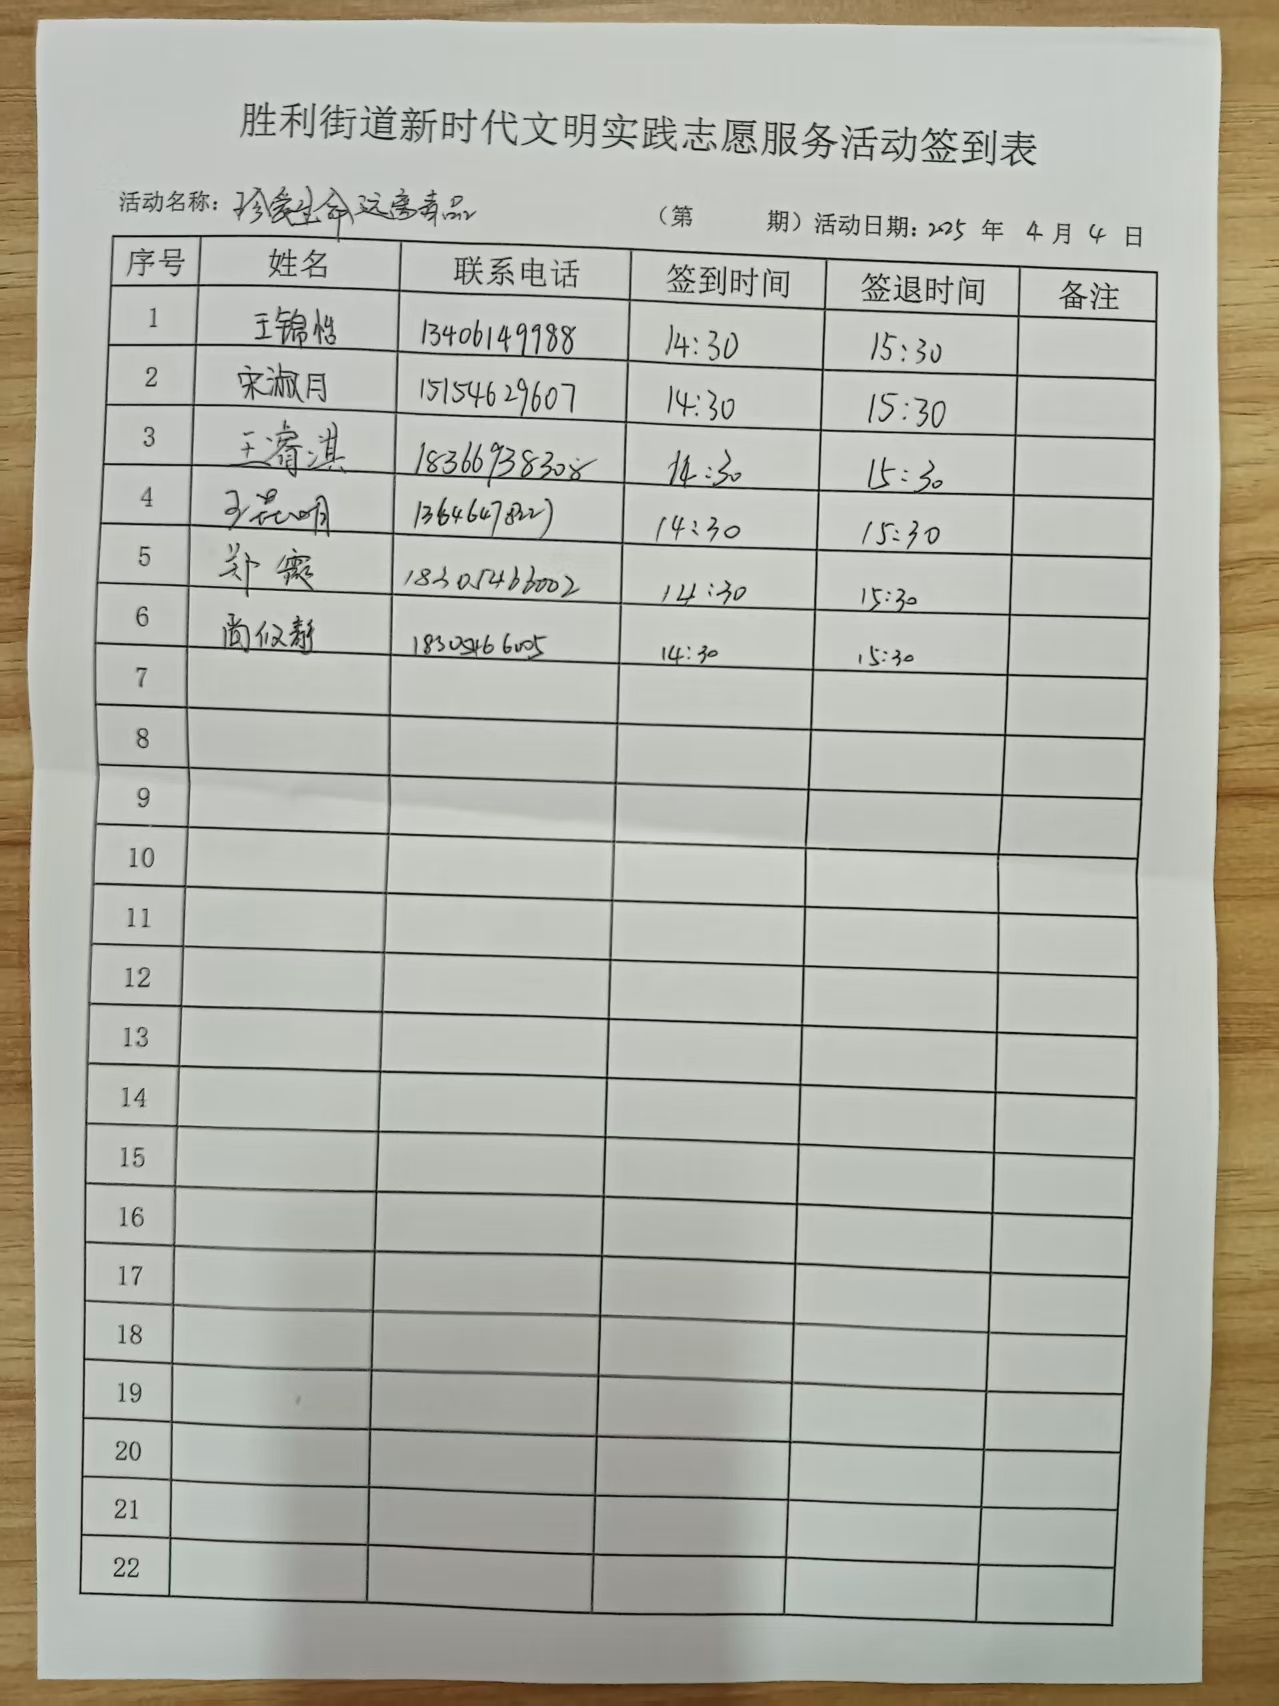 胜利街道新时代文明实践志愿服务活动签到表
活动名称：珍爱生命 远离毒品 （第 期）活动日期：2025 年 4 月 4 日
序号 姓名 联系电话 签到时间 签退时间 备注
1 王锦皓 13406149988 14:30 15:30
2 宋淑月 15154629607 14:30 15:30
3 王睿淇 18366938308 14:30 15:30
4 14:30 15:30
5 郑霞 18305466002 14:30 15:30
6 18305466005 14:30 15:30
7
8
9
10
11
12
13
14
15
16
17
18
19
20
21
22